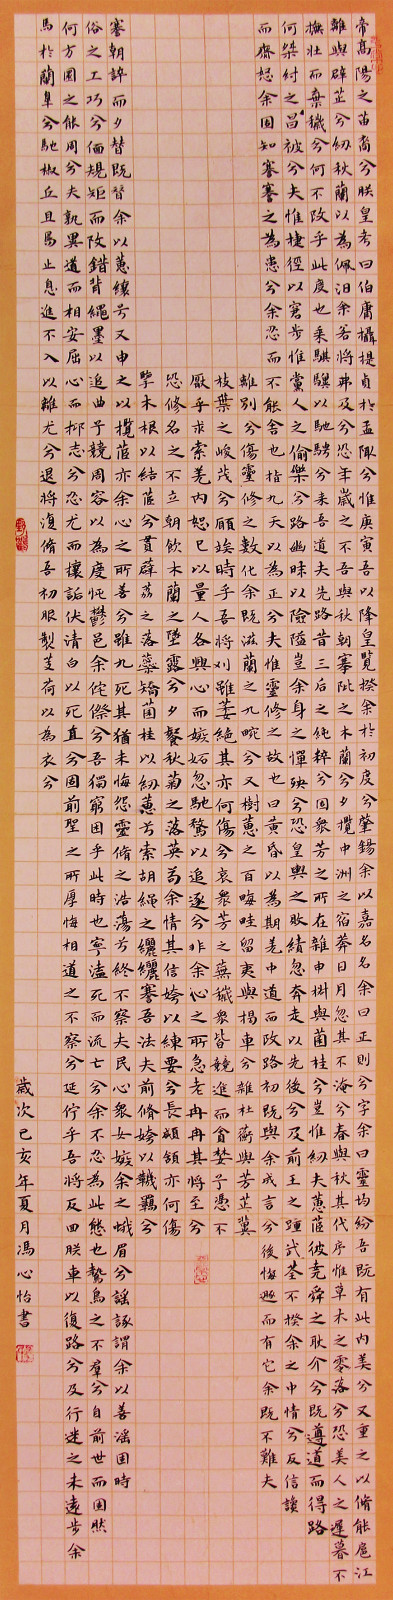 帝高陽之苗裔兮朕皇考曰伯庸攝提貞於孟陬兮惟庚寅吾以降皇覽揆余於初度兮肇錫余以嘉名名余曰正則兮字余曰靈均紛吾既有此內美兮又重之以脩能扈江
離與辟芷兮紉秋蘭以為佩汩余若將弗及兮恐年歲之不吾與秋朝搴阰之木蘭兮夕攬中洲之宿莽日月忽其不海兮春與秋其代序惟草木之零落兮恐美人之遲暮不
撫壯而棄穢兮何不改乎此度也乘騏驥以馳騁兮來吾道夫先路昔三后之純粹兮固衆芳之所在雜申椒與菌桂兮豈惟紉夫蕙茝彼堯舜之耿介兮既遵道而得路
何桀紂之昌被兮夫惟捷徑以窘步惟黨人之偷樂兮路幽昧以險隘豈余身之憚殃兮恐皇輿之敗績忽奔走以先後兮及前王之踵武荃不揆余之中情兮反信讒
而齌怒余固知謇謇之為患兮余忍而不能舍也指九天以為正兮夫惟靈修之故也曰黃昏以為期羌中道而改路初既與余成言兮後悔遁而有它余既不難夫
離別兮傷靈修之數化余既滋蘭之九畹兮又樹蕙之百晦畦留夷與揭車兮雜杜蘅與芳芷冀
枝葉之峻茂兮願竢時乎吾將刈雖萎絕其亦何傷兮哀衆芳之蕪穢衆皆競進而貪婪兮憑不
厭乎求索羌內恕己以量人各興心而嫉妬忽馳騖以追逐兮非余心之所急老冉冉其將至兮
恐修名之不立朝飲木蘭之墜露兮夕餐秋菊之落英苟余情其信姱以練要兮長顑頷亦何傷
擥木根以結茝兮貫薜荔之落蕊矯菌桂以紉蕙兮索胡繩之纚纚謇吾法夫前脩姱以鞿羈兮
謇朝誶而夕替既替余以蕙纕兮又申之以攬茝亦余心之所善兮雖九死其猶未悔怨靈脩之浩蕩兮終不察夫民心衆女嫉余之蛾眉兮謠諑謂余以善淫固時
俗之工巧兮偭規矩而改錯背繩墨以追曲兮競周容以為度忳鬱邑余侘傺兮吾獨窮困乎此時也寧溘死而流亡兮余不忍為此態也鷙鳥之不羣兮自前世而固然
何方圜之能周兮夫孰異道而相安屈心而抑志兮忍尤而攘詬伏清白以死直兮固前聖之所厚悔相道之不察兮延佇乎吾將反回朕車以復路兮及行迷之未遠步余
馬於蘭皋兮馳椒丘且焉止息進不入以離尤兮退將復脩吾初服製芰荷以為衣兮
歲次己亥年夏月馮心怡書